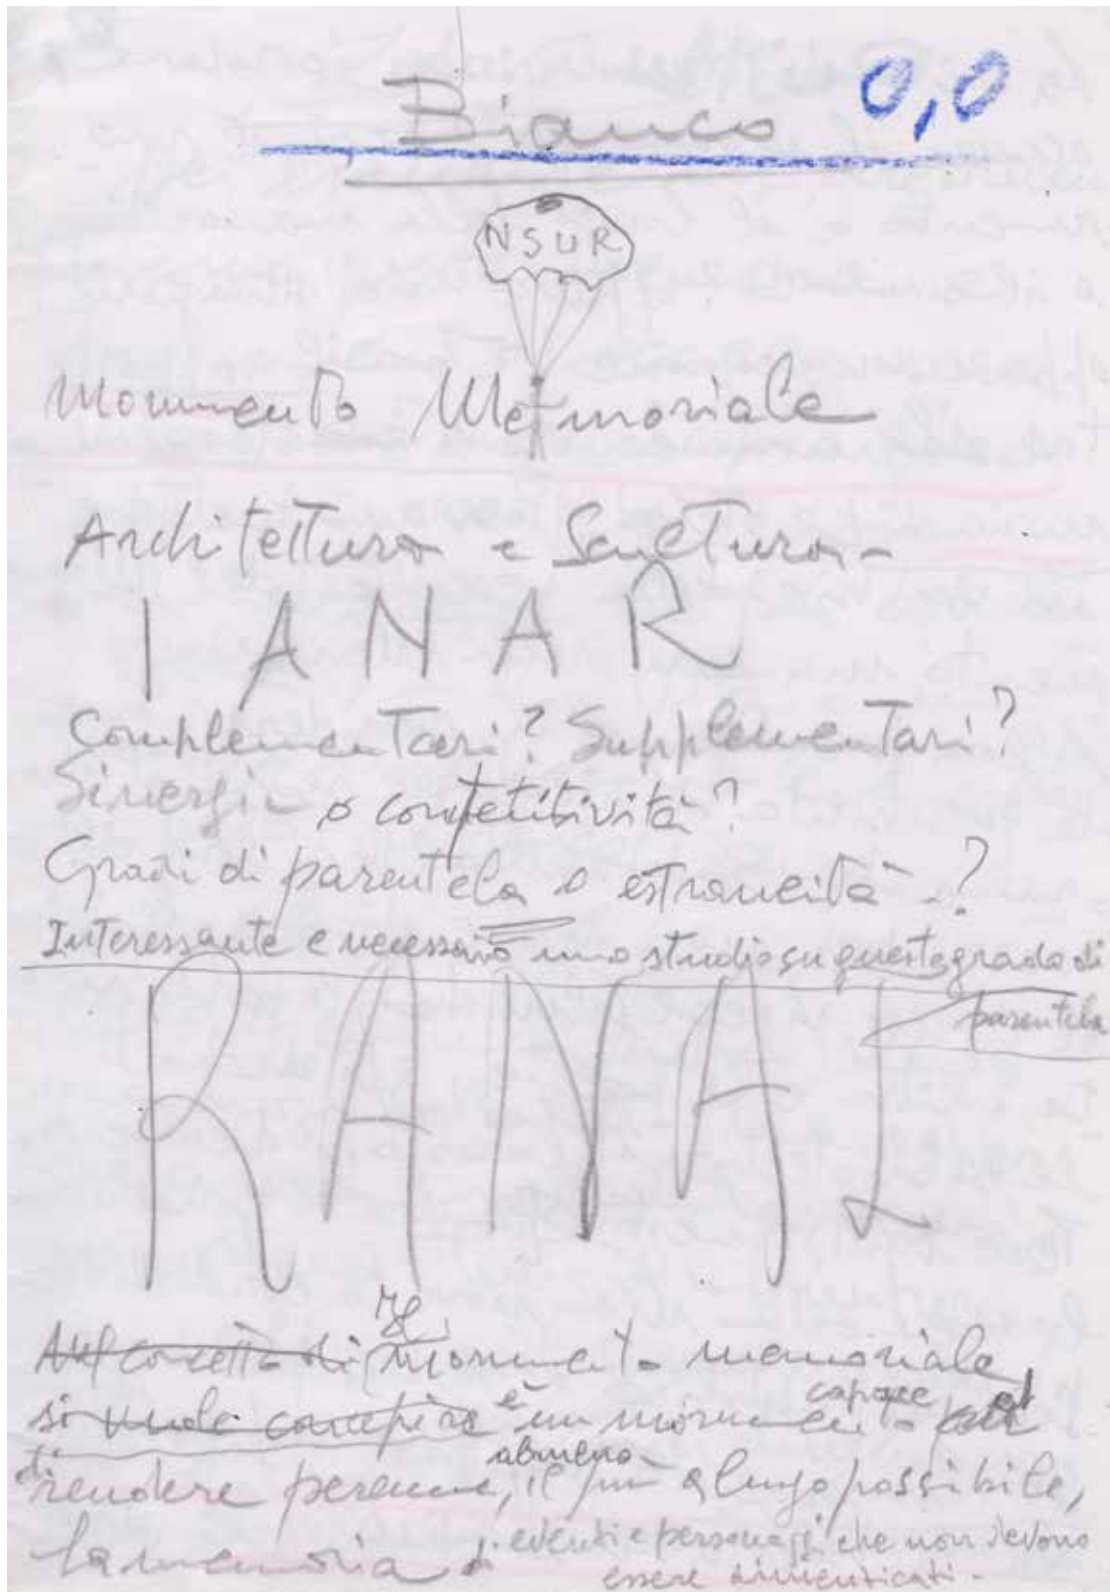 Bianco 0,0
NSUR
Monumento Memoriale
Architettura e Scultura -
IANAR
Complementari? Supplementari?
Sinergia o competitività?
Gradi di parentela o estraneità -?
Interessante e necessario uno studio su questo grado di
parentela
RANAI
Il
concetto di monumento memoriale
si vuole concepire è un monumento capace
di almeno
rendere perenne, il più a lungo possibile,
la memoria di eventi e personaggi che non devono
essere dimenticati -